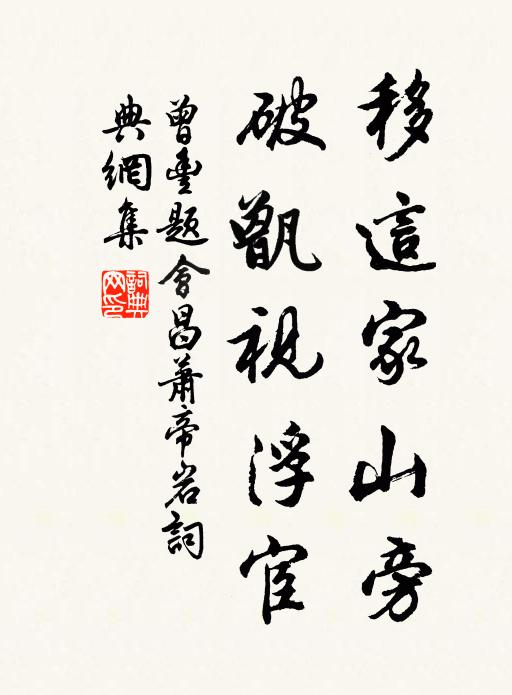 移這家山旁
破甑視浮宦
曾豐題會昌蕭帝岩詞
典網集
詞典
网印